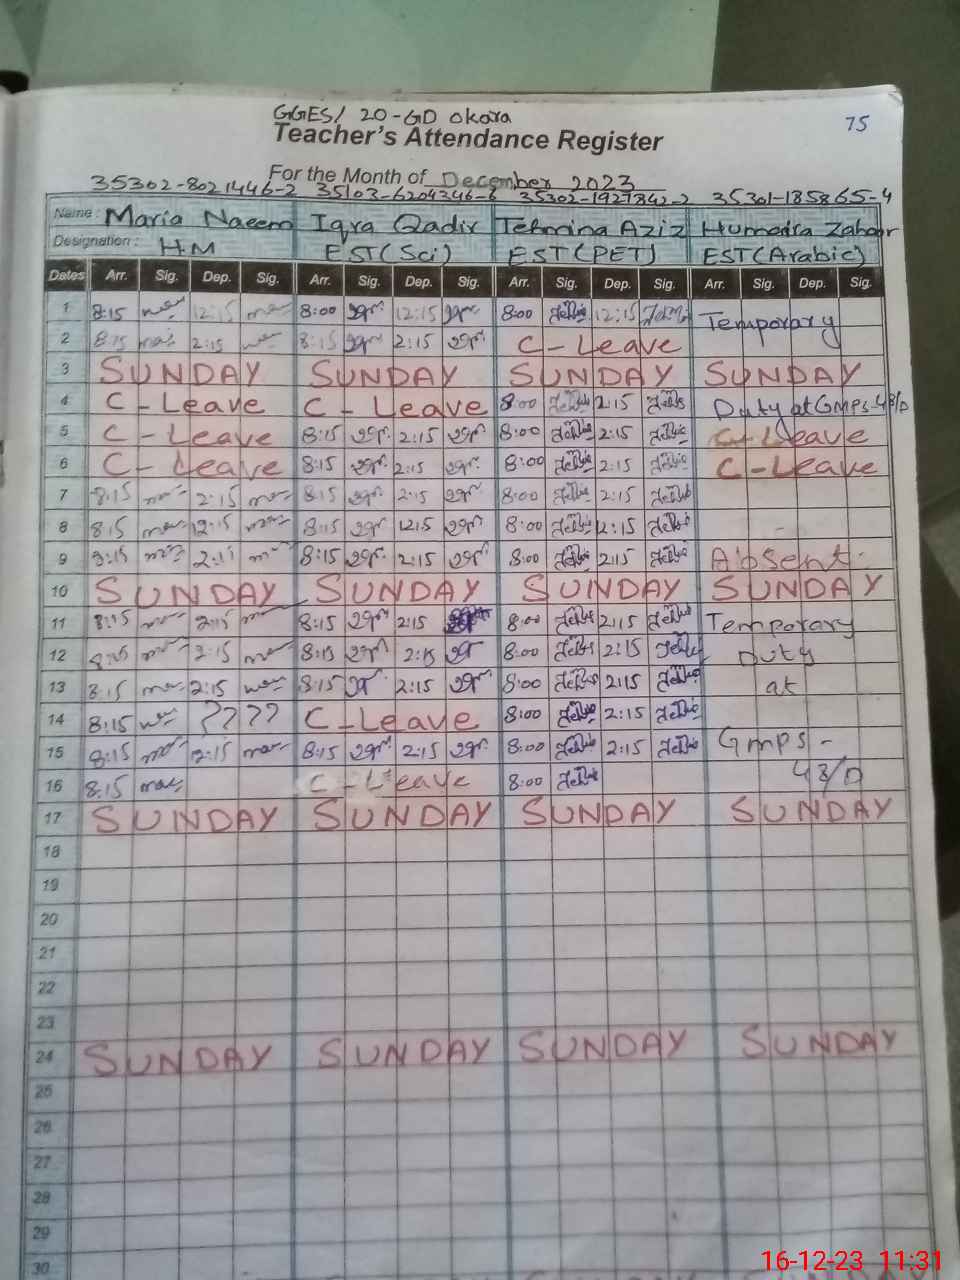 GGES/ 20-GD Okara
75
Teacher's Attendance Register
For the Month of December 2023
35302-8021446-2 35103-6204346-6 35302-1927842-2 35301-185865-4
Name: Maria Naeem Iqra Qadir Tehmina Aziz Humaira Zahoor
Designation: HM EST(Sci) EST(PET) EST(Arabic)
Dates Arr. Sig. Dep. Sig. Arr. Sig. Dep. Sig. Arr. Sig. Dep. Sig. Arr. Sig. Dep. Sig.
1 8:15 12:15 8:00 12:15 8:00 12:15 Temporary
2 8:15 2:15 8:15 2:15 C-Leave
3 SUNDAY SUNDAY SUNDAY SUNDAY
4 C-Leave C-Leave 8:00 2:15 Duty at GMPS-43/D
5 C-Leave 8:15 2:15 8:00 2:15 C-Leave
6 C-Leave 8:15 2:15 8:00 2:15 C-Leave
7 8:15 2:15 8:15 2:15 8:00 2:15
8 8:15 12:15 8:15 12:15 8:00 12:15 -
9 8:15 2:15 8:15 2:15 8:00 2:15 Absent
10 SUNDAY SUNDAY SUNDAY SUNDAY
11 8:15 2:15 8:15 2:15 8:00 2:15 Temporary
12 8:15 2:15 8:15 2:15 8:00 2:15 Duty
13 8:15 2:15 8:15 2:15 8:00 2:15 at
14 8:15 ???? C-Leave 8:00 2:15
15 8:15 2:15 8:15 2:15 8:00 2:15 Gmps -
16 8:15 C-Leave 8:00 43/D
17 SUNDAY SUNDAY SUNDAY SUNDAY
18
19
20
21
22
23
24 SUNDAY SUNDAY SUNDAY SUNDAY
25
26
27
28
29
30
16-12-23 11:31